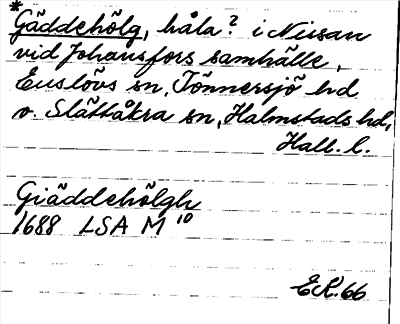 *Gäddehölg, håla? i Nissan
vid Johansfors samhälle,
Enslövs sn, Tönnersjö hd
o. Slättåkra sn, Halmstads hd,
Hall. l.
Giäddehölgh
1688 LSA M 10
EK. 66